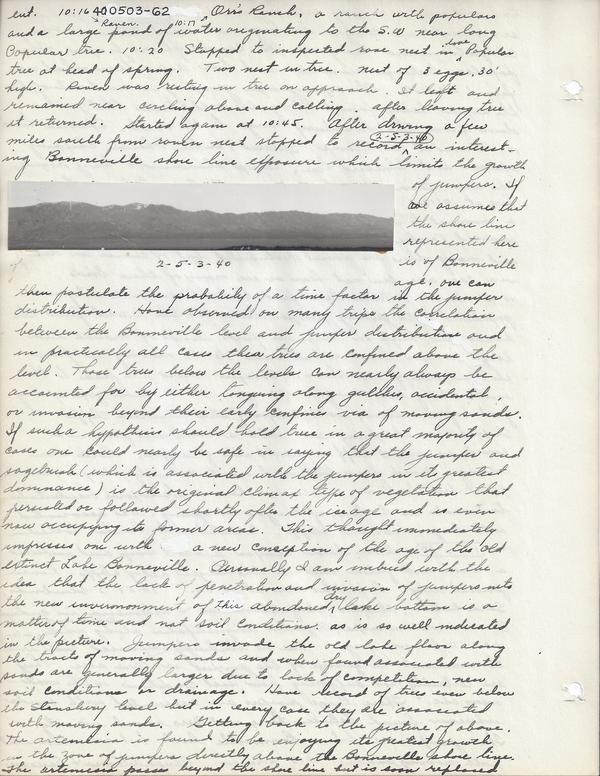 ent. 10:16 400503-62 10:17 Orr's Ranch, a ranch with populars
Raven.
and a large pond of water originating to the S.W near long
Popular tree. 10:20 Stopped to inspected rose nest in live Popular
tree at head of spring. Two nest in tree. nest of 3 eggs. 30'
high. Raven was resting in tree on approach. It left and
remained near circling above and calling. after leaving tree
it returned. Started again at 10:45. After driving a few
miles south from raven nest stopped to record 2-5-3-40 an interest-
ing Bonneville shore line exposure which limits the growth
of junipers. If
one assumes that
the shore line
represented here
is of Bonneville
age, one can
2-5-3-40
then postulate the probability of a time factor in the juniper
distribution. Have observed on many trips the correlation
between the Bonneville level and juniper distribution and
in practically all cases these trees are confined above the
level. Those trees below the levels can nearly always be
accounted for by either tonguing along gulches, accidental,
or invasion beyond their early confines via of moving sands.
If such a hypothesis should hold true in a great majority of
cases one could nearly be safe in saying that the juniper and
sagebrush (which is associated with the junipers in its greatest
dominance) is the original climax type of vegetation that
persisted or followed shortly after the ice age and is even
now occupying its former areas. This thought immediately
impresses one with a new conception of the age of the old
extinct Lake Bonneville. Personally I am imbued with the
idea that the lack of penetration and invasion of junipers into
the new invironment of this abandoned dry lake bottom is a
matter of time and not soil conditions. as is so well indicated
in the picture. Junipers invade the old lake floor along
the tracts of moving sands and when found associated with
sands are generally larger due to lack of competition, new
soil conditions or drainage. Have record of trees even below
the Stansbury level but in every case they are associated
with moving sands. Getting back to the picture of above.
The artemesia is found to be enjoying its greatest growth
in the zone of junipers directly above the Bonneville shore line.
The artemesia passes beyond the shore line but is soon replaced